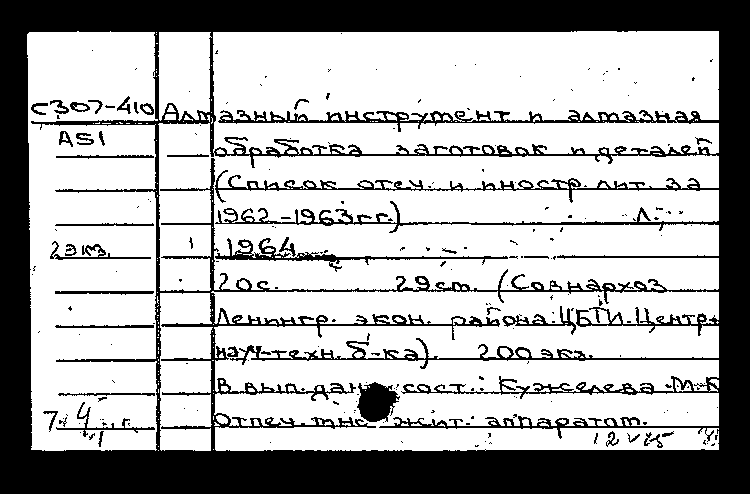 С307-410 Алмазный инструмент и алмазная
А51 обработка заготовок и деталей
(Список отеч. и иностр. лит. за
1962-1963гг.) Л.,
2экз. 1964
20с. 29см. (Совнархоз
Ленингр. экон. района. ЦБТИ. Центр.
науч-техн. б-ка). 200 экз.
В вып. дан. сост.: Кужелева М.К
Отпеч. множит. аппаратом.